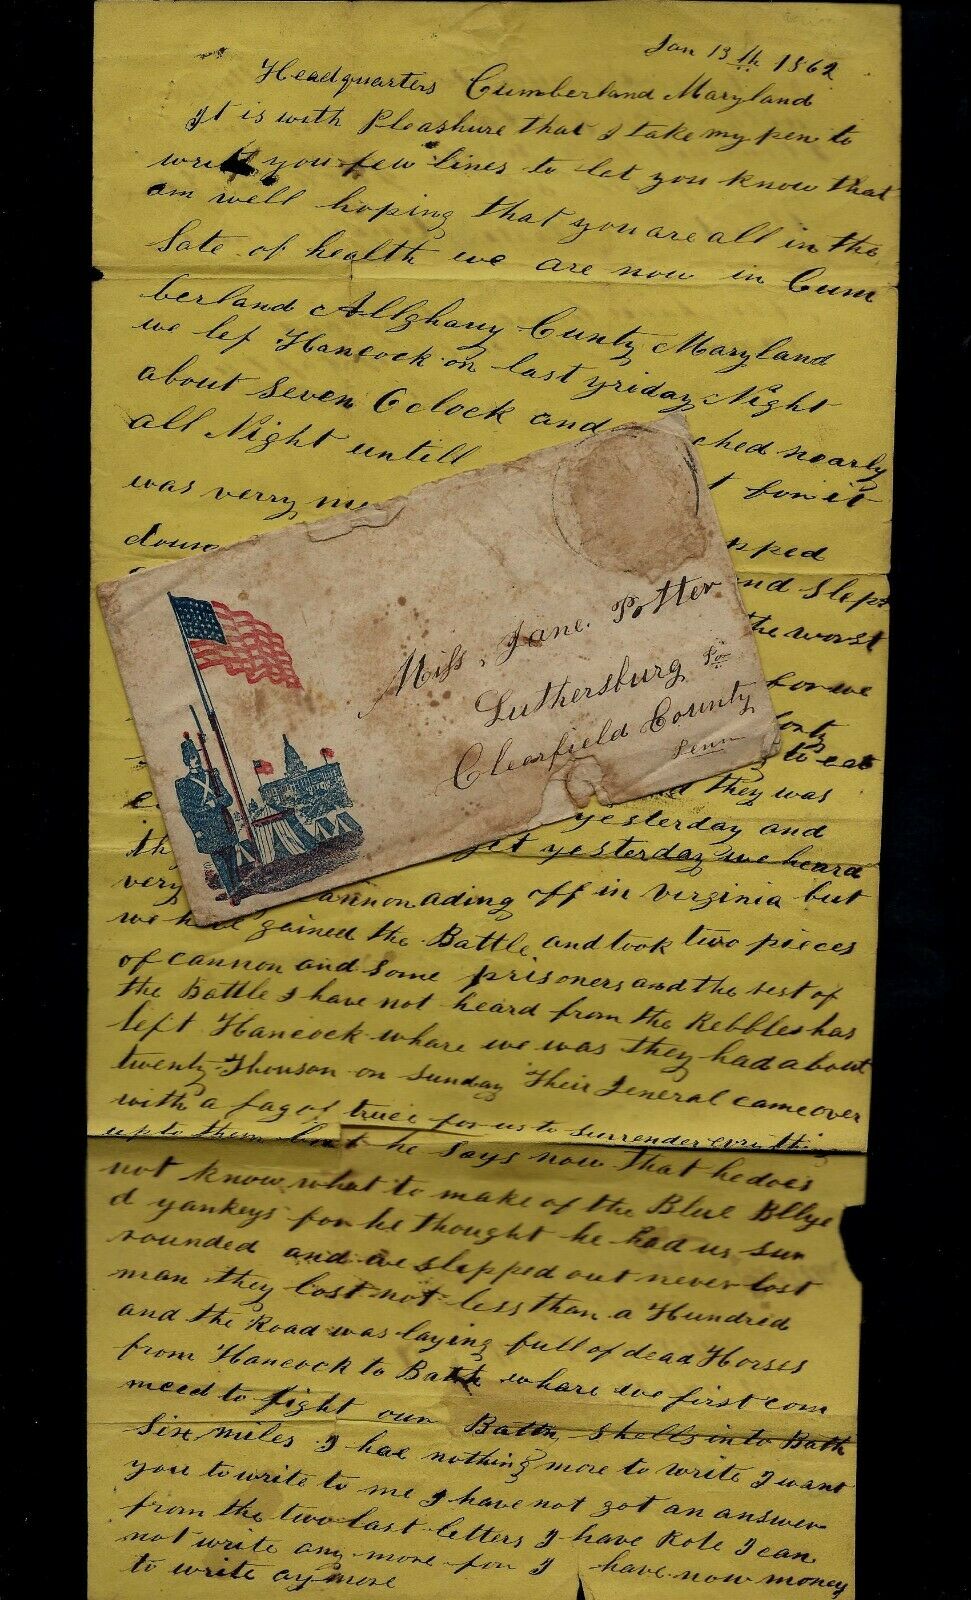 Jan 13th 1862
Headquarters Cumberland Maryland
It is with Pleashure that I take my pen to
write you few lines to let you know that
am well hoping that you are all in the
Sate of health we are now in Cum
berland Allghany Cunty Maryland
we lef Hancock on last yriday Night
about Seven Oclock and ched nearly
all Night untill
was verry for it
down pped
nd Slept
the worst
for we
to eat
they was
yesterday and
yet yesterday we heard
very annonading off in virginia but
we have gained the Battle and took two pieces
of cannon and some prisoners and the rest of
the Battle I have not heard from the Rebbles has
left Hancock whare we was they had about
twenty Thouson on sunday Their Jeneral came over
with a fag of truce for us to surrender evry thing
up to them but he says now that he does
not know what to make of the Blue Bllye
d yankeys for he thought he had us sur
rounded and we slipped out never lost
man they lost not less than a Hundred
and the Road was laying full of dead Horses
from Hancock to Bath whare we first com
meced to fight our Battry shells into Bath
Six miles I hae nothing more to write I want
you to write to me I have not got an answer
from the two last letters I have Rote I can
not write any more for I have now money
to write ay more
Miss, Jane. Potter
Luthersburg Po
Clearfield County
Penn